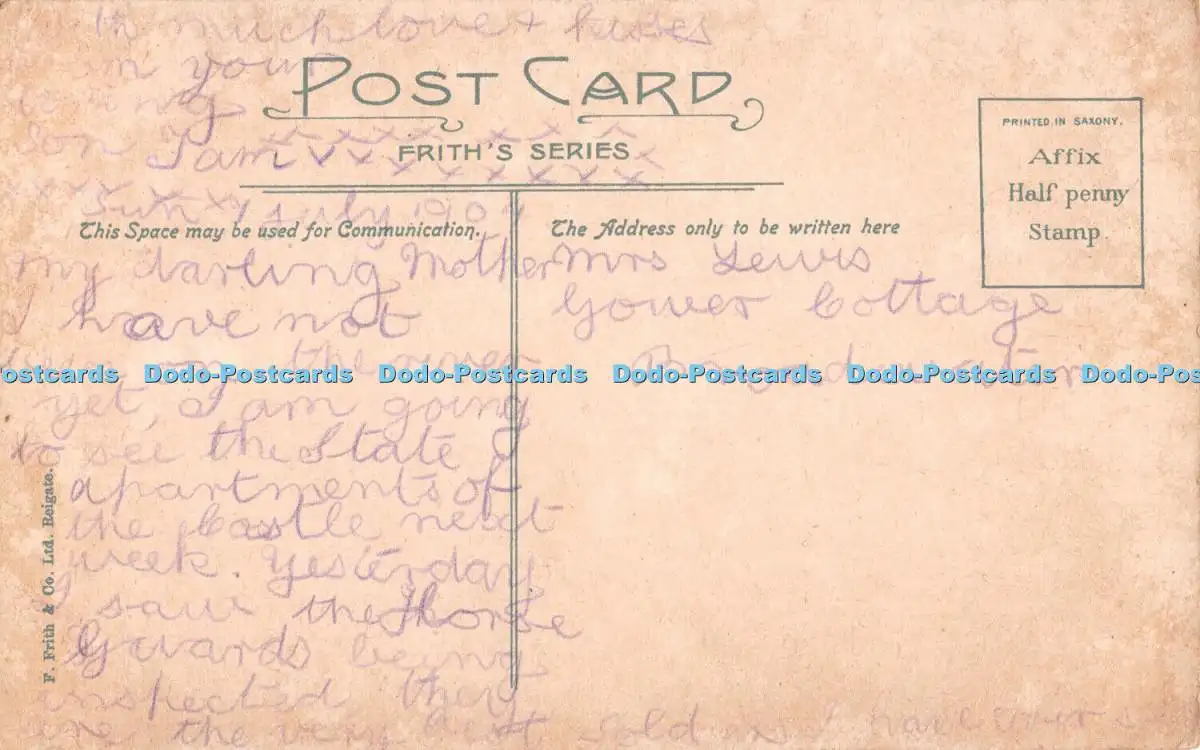 much love + kisses
your
son Iam
POST CARD
FRITH'S SERIES
PRINTED IN SAXONY.
Affix
Half penny
Stamp.
This Space may be used for Communication.
The Address only to be written here
my darling Mother
I have not
the river
yet, I am going
to see the State
apartments of
the Castle next
week. Yesterday
I saw the Horse
Guards being
inspected they
are the very best I have ever
Mrs Lewis
Gower Cottage
Dodo-Postcards Dodo-Postcards Dodo-Postcards Dodo-Postcards
F. Frith & Co. Ltd. Reigate.